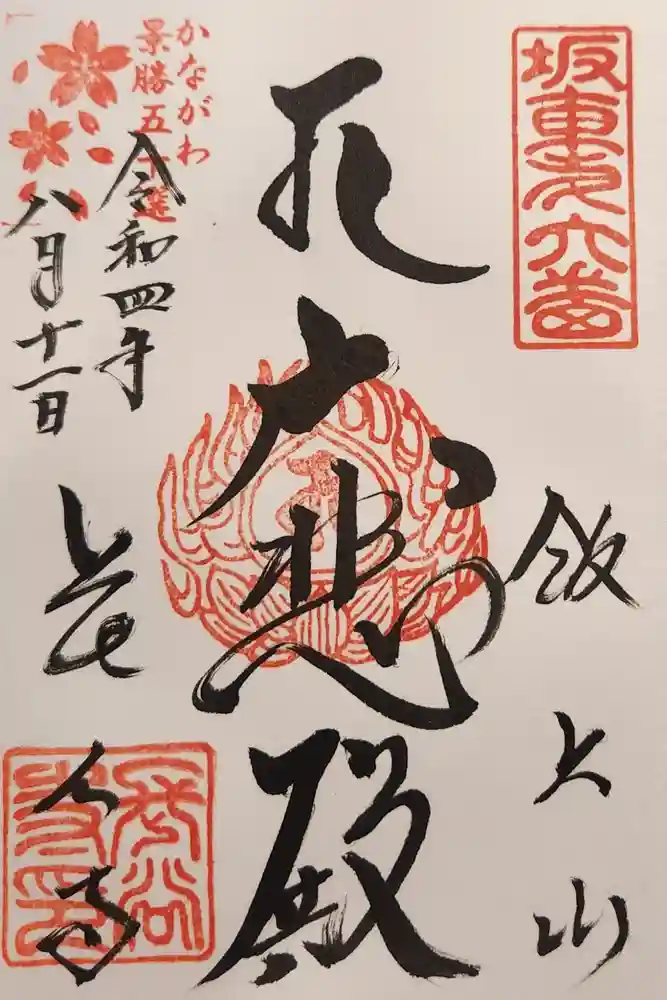 坂東第六番
飯上山
大悲殿
かながわ
景勝五十選
令和四年
八月十一日
長谷寺
長谷
寺印